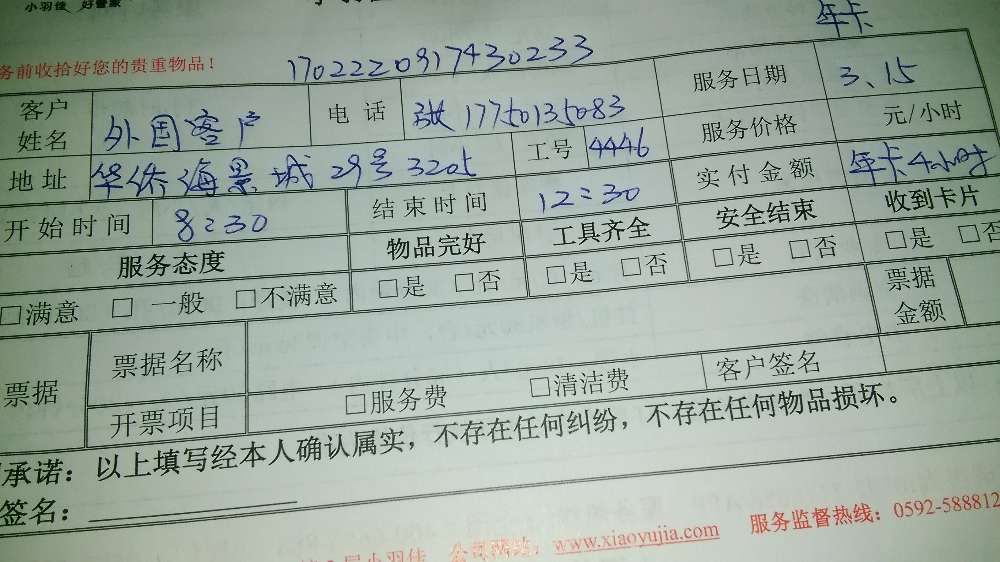 小羽佳 好管家
年卡
务前收拾好您的贵重物品！
1702220917430233
客户姓名 外国客户 电话 张 17750135083 服务日期 3、15
地址 华侨海景城29号3205 工号 4446 服务价格 元/小时
开始时间 8:30 结束时间 12:30 实付金额 年卡4小时
服务态度 物品完好 工具齐全 安全结束 收到卡片
□满意 □ 一般 □不满意 □是 □否 □是 □否 □是 □否 □是 □否
票据 票据名称 票据金额
开票项目 □服务费 □清洁费 客户签名
承诺：以上填写经本人确认属实，不存在任何纠纷，不存在任何物品损坏。
签名：
小羽佳 公司网站：www.xiaoyujia.com 服务监督热线：0592-588812